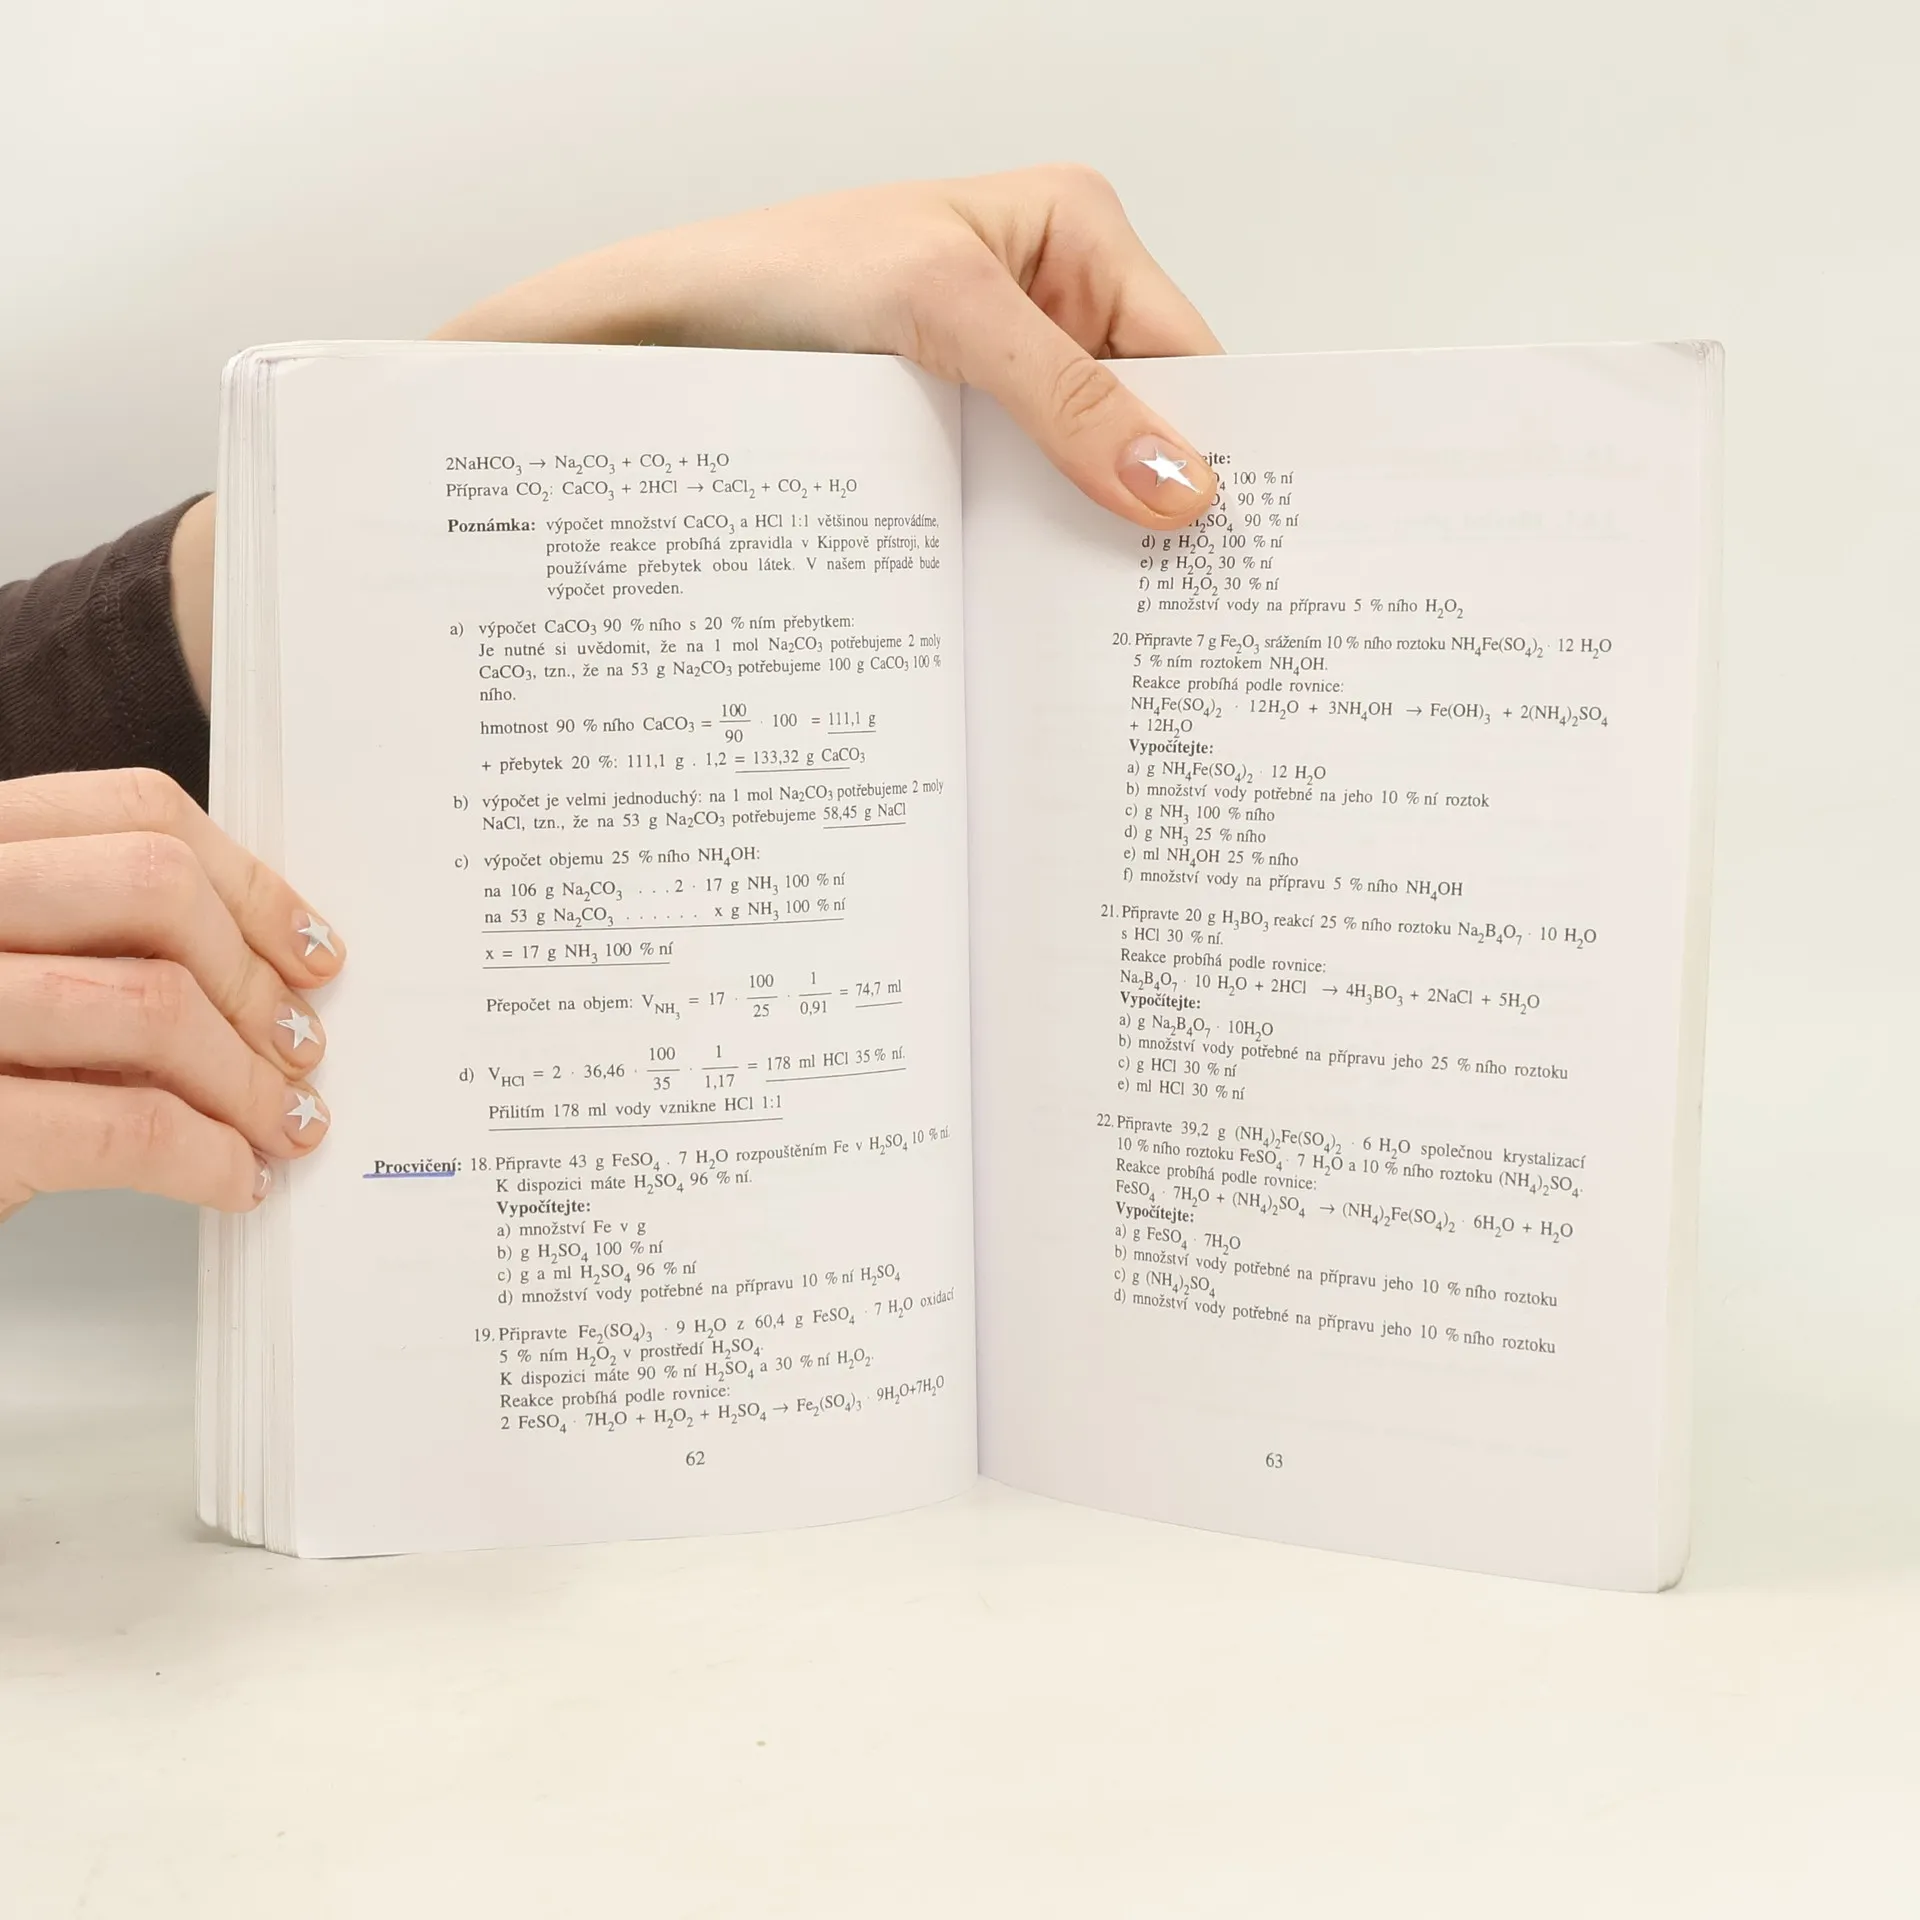 2NaHCO₃ → Na₂CO₃ + CO₂ + H₂O
Příprava CO₂: CaCO₃ + 2HCl → CaCl₂ + CO₂ + H₂O
Poznámka: výpočet množství CaCO₃ a HCl 1:1 většinou neprovádíme,
protože reakce probíhá zpravidla v Kippově přístroji, kde
používáme přebytek obou látek. V našem případě bude
výpočet proveden.
a) výpočet CaCO₃ 90 % ního s 20 % ním přebytkem:
Je nutné si uvědomit, že na 1 mol Na₂CO₃ potřebujeme 2 moly
CaCO₃, tzn., že na 53 g Na₂CO₃ potřebujeme 100 g CaCO₃ 100 %
ního.
hmotnost 90 % ního CaCO₃ = 100/90 · 100 = 111,1 g
+ přebytek 20 %: 111,1 g . 1,2 = 133,32 g CaCO₃
b) výpočet je velmi jednoduchý: na 1 mol Na₂CO₃ potřebujeme 2 moly
NaCl, tzn., že na 53 g Na₂CO₃ potřebujeme 58,45 g NaCl
c) výpočet objemu 25 % ního NH₄OH:
na 106 g Na₂CO₃ . . . 2 · 17 g NH₃ 100 % ní
na 53 g Na₂CO₃ . . . . . . x g NH₃ 100 % ní
x = 17 g NH₃ 100 % ní
Přepočet na objem: V_NH₃ = 17 · 100/25 · 1/0,91 = 74,7 ml
d) V_HCl = 2 · 36,46 · 100/35 · 1/1,17 = 178 ml HCl 35 % ní.
Přilitím 178 ml vody vznikne HCl 1:1
Procvičení: 18. Připravte 43 g FeSO₄ . 7 H₂O rozpouštěním Fe v H₂SO₄ 10 % ní.
K dispozici máte H₂SO₄ 96 % ní.
Vypočítejte:
a) množství Fe v g
b) g H₂SO₄ 100 % ní
c) g a ml H₂SO₄ 96 % ní
d) množství vody potřebné na přípravu 10 % ní H₂SO₄
19. Připravte Fe₂(SO₄)₃ · 9 H₂O z 60,4 g FeSO₄ · 7 H₂O oxidací
5 % ním H₂O₂ v prostředí H₂SO₄.
K dispozici máte 90 % ní H₂SO₄ a 30 % ní H₂O₂.
Reakce probíhá podle rovnice:
2 FeSO₄ · 7H₂O + H₂O₂ + H₂SO₄ → Fe₂(SO₄)₃ · 9H₂O+7H₂O
62
100 % ní
90 % ní
90 % ní
d) g H₂O₂ 100 % ní
e) g H₂O₂ 30 % ní
f) ml H₂O₂ 30 % ní
g) množství vody na přípravu 5 % ního H₂O₂
20. Připravte 7 g Fe₂O₃ srážením 10 % ního roztoku NH₄Fe(SO₄)₂ · 12 H₂O
5 % ním roztokem NH₄OH.
Reakce probíhá podle rovnice:
NH₄Fe(SO₄)₂ · 12H₂O + 3NH₄OH → Fe(OH)₃ + 2(NH₄)₂SO₄
+ 12H₂O
Vypočítejte:
a) g NH₄Fe(SO₄)₂ · 12 H₂O
b) množství vody potřebné na jeho 10 % ní roztok
c) g NH₃ 100 % ního
d) g NH₃ 25 % ního
e) ml NH₄OH 25 % ního
f) množství vody na přípravu 5 % ního NH₄OH
21. Připravte 20 g H₃BO₃ reakcí 25 % ního roztoku Na₂B₄O₇ · 10 H₂O
s HCl 30 % ní.
Reakce probíhá podle rovnice:
Na₂B₄O₇ · 10 H₂O + 2HCl → 4H₃BO₃ + 2NaCl + 5H₂O
Vypočítejte:
a) g Na₂B₄O₇ · 10H₂O
b) množství vody potřebné na přípravu jeho 25 % ního roztoku
c) g HCl 30 % ní
e) ml HCl 30 % ní
22. Připravte 39,2 g (NH₄)₂Fe(SO₄)₂ · 6 H₂O společnou krystalizací
10 % ního roztoku FeSO₄ · 7 H₂O a 10 % ního roztoku (NH₄)₂SO₄.
Reakce probíhá podle rovnice:
FeSO₄ · 7H₂O + (NH₄)₂SO₄ → (NH₄)₂Fe(SO₄)₂ · 6H₂O + H₂O
Vypočítejte:
a) g FeSO₄ · 7H₂O
b) množství vody potřebné na přípravu jeho 10 % ního roztoku
c) g (NH₄)₂SO₄
d) množství vody potřebné na přípravu jeho 10 % ního roztoku
63